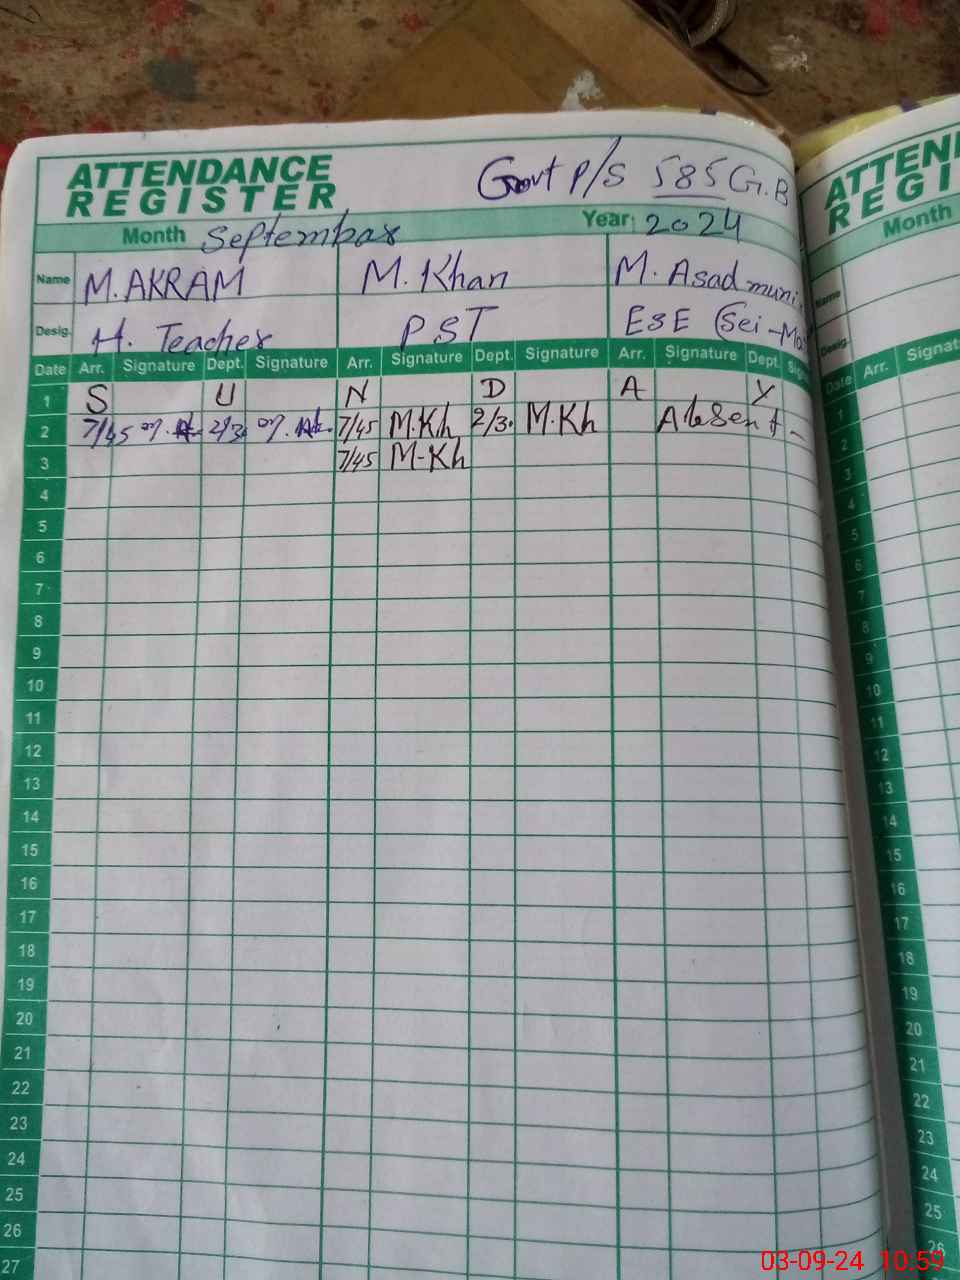 ATTENDANCE REGISTER Govt P/S 585 G.B
Month September Year: 2024
Name M. AKRAM M. Khan M. Asad muni
Desig. H. Teacher PST ESE (Sci-Ma
Date Arr. Signature Dept. Signature Arr. Signature Dept. Signature Arr. Signature Dept. Sign
1 S U N D A Y
2 7/45 2/3 7/45 M.Kh 2/30 M.Kh Absent -
3 7/45 M-Kh
4
5
6
7
8
9
10
11
12
13
14
15
16
17
18
19
20
21
22
23
24
25
26
27
ATTEN
REGI
Month
Name
Desig.
Date Arr. Signat
1
2
3
4
5
6
7
8
9
10
11
12
13
14
15
16
17
18
19
20
21
22
23
24
25
26
03-09-24 10:59